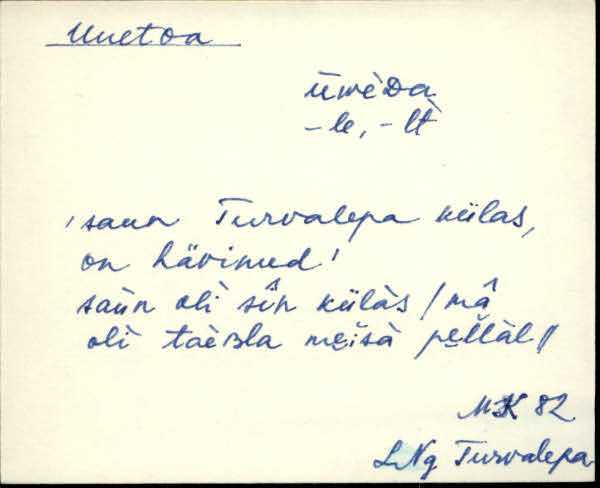 Uuetoa
ūwèDa
-le, -lt̀
'saun Turvalepa külas,
on hävinud'
saùn olì sîn külàs / mâ
olì taèʙla mẹisà pẹl̆làl //
MK 82
LNg Turvalepa